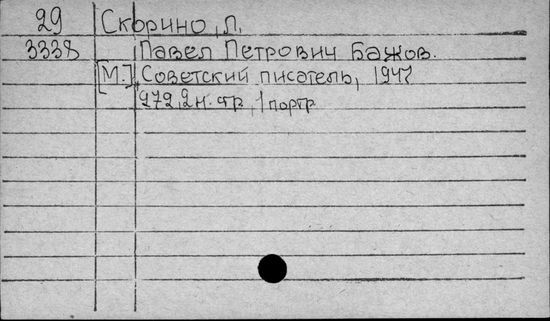 29 Скорино, Л.
3338 Павел Петрович Бажов.
[М.] Советский писатель, 1947
272, 2 н. стр., 1 портр